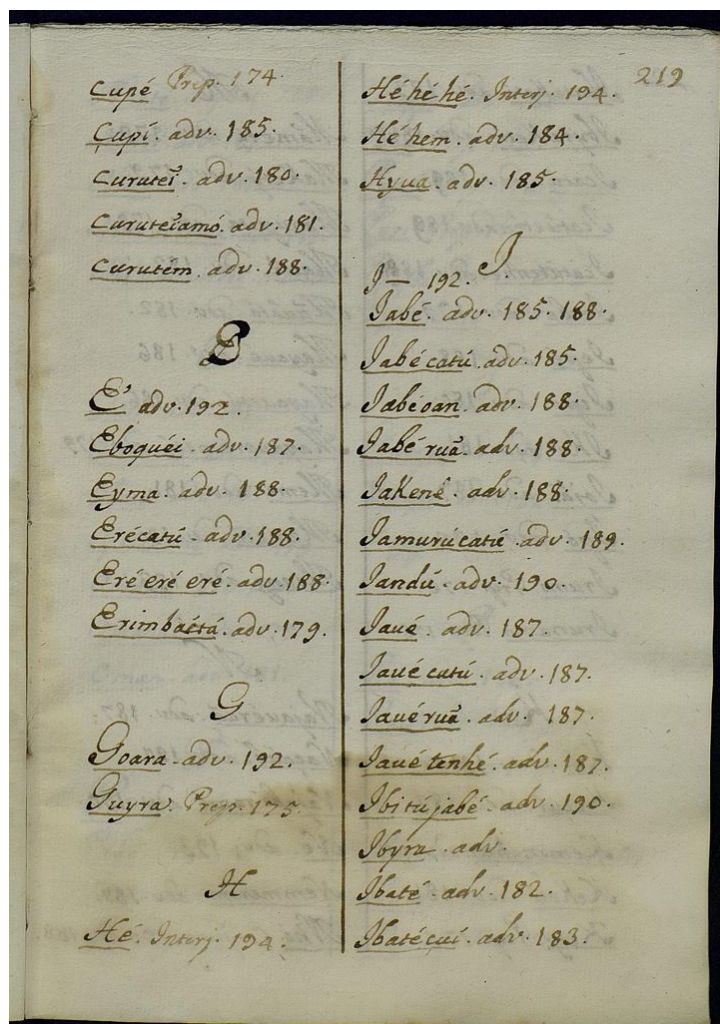 219
Cupé Prep. 174.
Cupí. adv. 185.
Curuteĩ. adv. 180.
Curuteĩamó. adv. 181.
Curutem. adv. 188.
E
E' adv. 192.
Eboquéi. adv. 187.
Eyma. adv. 188.
Erécatú. adv. 188.
Eré eré eré. adv. 188.
adv. 179.
G
Goara. adv. 192.
Guyra. Prep. 175.
H
Hé. Interj. 194.
Hé hé hé. Interj. 194.
Hé hem. adv. 184.
Hyua. adv. 185.
J
J— 192.
Jabé. adv. 185. 188.
Jabé catú. adv. 185.
Jabéoan. adv. 188.
Jabé ruã. adv. 188.
JaKené. adv. 188.
Jamurúcatú. adv. 189.
Jandú. adv. 190.
Jaué. adv. 187.
Jaué catú. adv. 187.
Jauéruã. adv. 187.
Jaué tenhé. adv. 187.
Jbitú jabé. adv. 190.
Jbyra. adv.
Jbaté. adv. 182.
Jbatécuí. adv. 183.